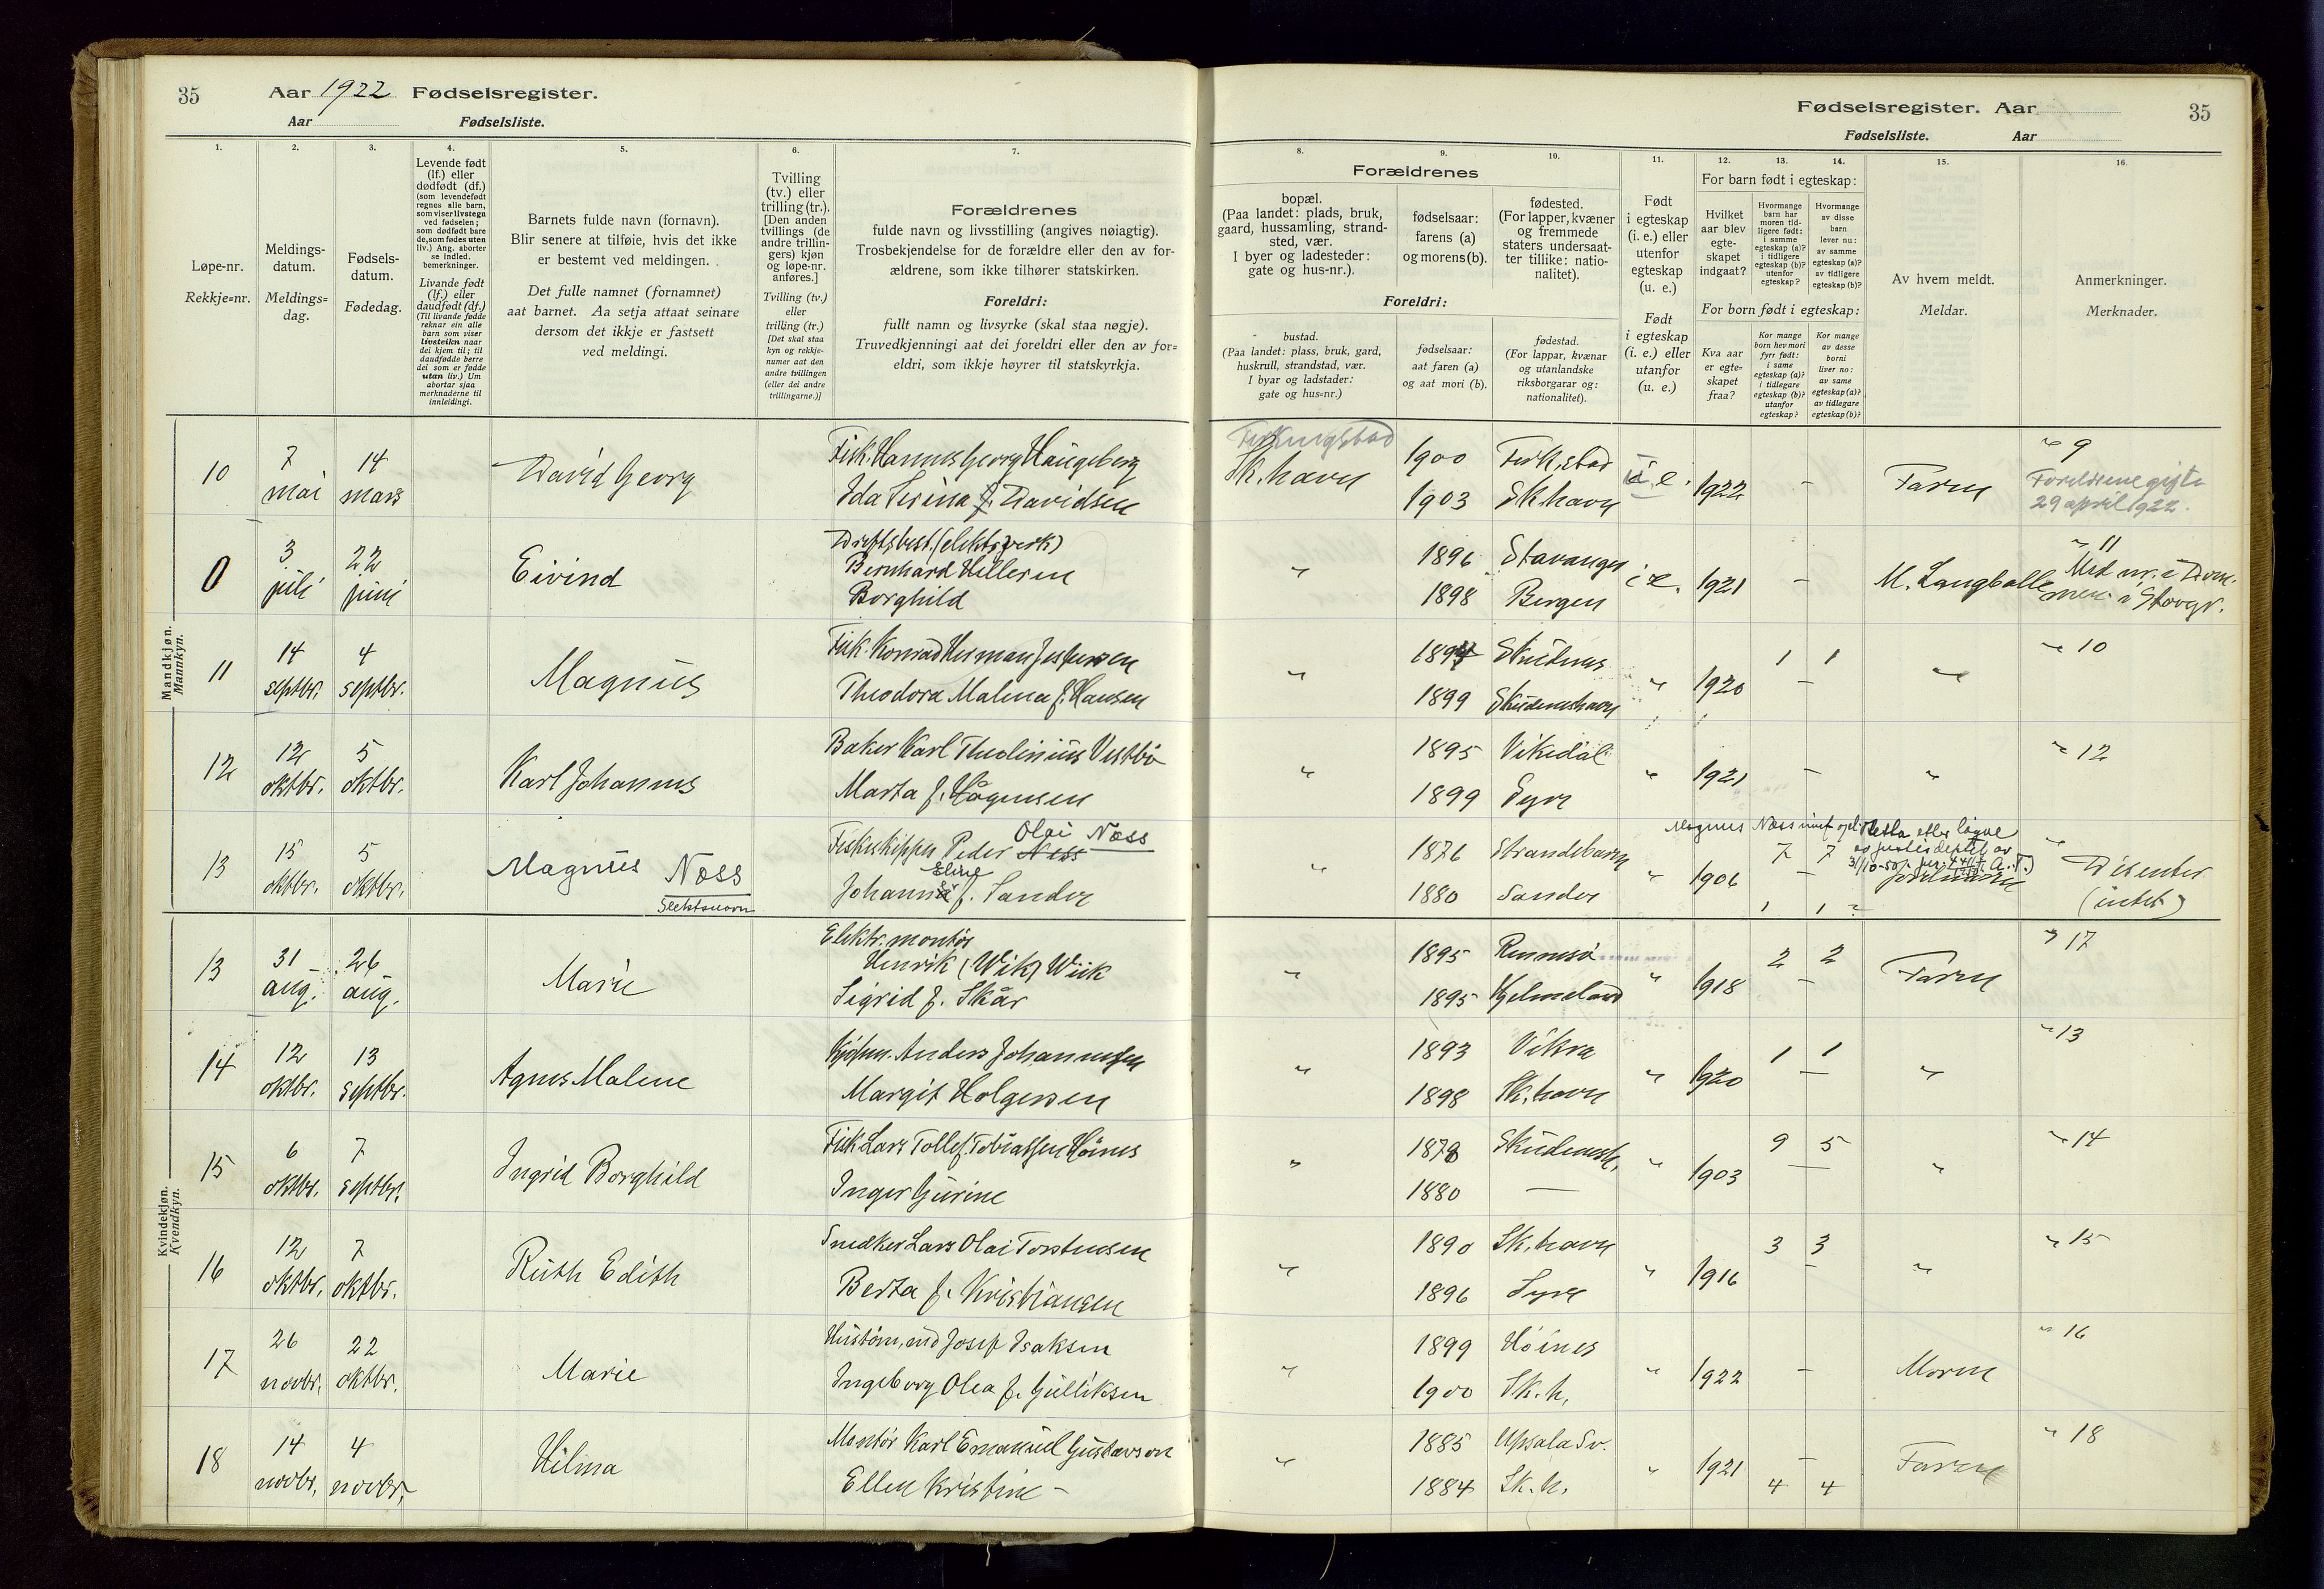 35
Aar 1922 Fødselsregister.
Aar Fødselsliste.
Fødselsregister. Aar
35
Fødselsliste. Aar
1. 2. 3. 4. 5. 6. 7. 8. 9. 10. 11. 12. 13. 14. 15. 16.
Løpe-nr.
Rekkje=nr.
Meldings-
datum.
Meldings=
dag.
Fødsels-
datum.
Fødedag.
Levende født
(lf.) eller
dødfødt (df.)
(som levendefødt
regnes alle barn,
som viser livstegn
ved fødselen;
som dødfødt bare
de, som fødes uten
liv.) Ang. aborter
se indled.
bemerkninger.
Livande født
(lf.) eller
daudfødt (df.)
(Til livande fødde
reknar ein alle
barn som viser
livsteikn naar
dei kjem til; til
daudfødde berre
dei som er fødde
utan liv.) Um
abortar sjaa
merknaderne til
innleidingi.
Barnets fulde navn (fornavn).
Blir senere at tilføie, hvis det ikke
er bestemt ved meldingen.
Det fulle namnet (fornamnet)
aat barnet. Aa setja attaat seinare
dersom det ikkje er fastsett
ved meldingi.
Tvilling
(tv.) eller
trilling (tr.).
[Den anden
tvillings (de
andre trillin-
gers) kjøn
og løpe-nr.
anføres.]
Tvilling (tv.)
eller
trilling (tr.)
[Det skal staa
kyn og rekkje-
numer aat den
andre tvillingen
(eller dei andre
trillingarne.)]
Forældrenes
fulde navn og livsstilling (angives nøiagtig).
Trosbekjendelse for de forældre eller den av for-
ældrene, som ikke tilhører statskirken.
Foreldri:
fullt namn og livsyrke (skal staa nøgje).
Truvedkjenningi aat dei foreldri eller den av for=
eldri, som ikkje høyrer til statskyrkja.
Forældrenes
bopæl.
(Paa landet: plads, bruk,
gaard, hussamling, strand-
sted, vær.
I byer og ladesteder:
gate og hus-nr.).
fødselsaar:
farens (a)
og morens (b).
fødested.
(For lapper, kvæner
og fremmede
staters undersaat-
ter tillike: natio-
nalitet).
Foreldri:
bustad.
(Paa landet: plass, bruk, gard,
huskrull, strandstad, vær.
I byar og ladstader:
gate og hus=nr.)
fødselsaar:
aat faren (a)
og aat mori (b).
fødestad.
(For lappar, kvænar
og utanlandske
riksborgarar og:
nationalitet).
Født
i egteskap
(i. e.) eller
utenfor
egteskap
(u. e.)
Født
i egteskap
(i. e.) eller
utanfor
(u. e.)
For barn født i egteskap:
Hvilket
aar blev
egte-
skapet
indgaat?
Hvormange
barn har
moren tid-
ligere født:
i samme
egteskap (a)?
i tidligere
egteskap (b)?
utenfor
egteskap?
Hvormange
av disse
barn
lever nu:
av samme
egteskap (a)?
av tidligere
egteskap (b)?
For born født i egteskap:
Kva aar
er egte=
skapet
fraa?
Kor mange
born hev mori
fyrr født:
i same
egteskap (a)?
i tidlegare
egteskap (b)?
utanfor
egteskap?
Kor mange
av desse
borni
liver no:
av same
egteskap (a)?
av tidlegare
egteskap (b)?
Av hvem meldt.
Meldar.
Anmerkninger.
Merknader.
Mandkjøn.
Mannkyn.
10 7 mai 14 mars David Georg
Fisk. Hannes Georg Haugeberg
Ida Serina f. Davidsen
Ferkingstad
Sk.havn
1900 Ferk.stad
1903 Sk.havn
i. e. 1922 - Faren
" 9
Foreldrene gifte
29 april 1922.
0 3 juli 22 juni Eivind
Driftsbest. (elektr. verk)
Bernhard Hillesen
Borghild
" 1896 Stavanger
1898 Bergen
i e. 1921 - M. Langballe
" 11
Med nr. i
11 14 septbr. 4 septbr. Magnus
Fisk. Konrad Herman Jespersen
Theodora Malena f. Hansen
" 1894 Skudenes
1899 Skudeneshavn
" 1920 1 1 - " " 10
12 12 oktbr. 5 oktbr. Karl Johannes
Baker Karl Theolinius Vestbø
Marta f. Hågensen
" 1895 Vikedal
1899 Syre
" 1921 - " " 12
13 15 oktbr. 5 oktbr. Magnus Næss
Slektsnavn
Fiskeskipper Peder Ness Olai Næss
Johanne Eline f. Sandes
" 1876 Strandebarm
1880 Sandes
" 1906 7 7 -
1 1 ?
Magnus Næss
Dissenter
(intet)
Kvindekjøn.
Kvendkyn.
13 31 aug. 26 aug. Marie
Elektr. montør
Henrik (Wik) Wiik
Sigrid f. Skår
" 1895 Rennesø
1895 Hjelmeland
" 1918 2 2 - Faren " 17
14 12 oktbr. 13 septbr. Agnes Malene
Kjøpm. Anders Johannessen
Margit Holgersen
" 1893 Vikra
1898 Sk.havn
" 1920 1 1 - " " 13
15 6 oktbr. 7 septbr. Ingrid Borghild
Fisk. Lars Tollef. Tobiassen Høines
Inger Gurine
" 1878 Skudenesh.
1880 —
" 1903 9 5 - " " 14
16 12 oktbr. 7 oktbr. Ruth Edith
Snedker Lars Olai Torstensen
Berta f. Kristiansen
" 1890 Sk.havn
1896 Syre
" 1916 3 3 - " " 15
17 26 novbr. 22 oktbr. Marie
Hustømmermd Josef Isaksen
Ingeborg Olea f. Gulliksen
" 1899 Høines
1900 Sk.h.
" 1922 - Moren " 16
18 14 novbr. 4 novbr. Hilma
Montør Karl Emanuel Gustavson
Ellen Kristine -
" 1885 Upsala Sv.
1884 Sk.h.
" 1921 - 4 4 Faren " 18